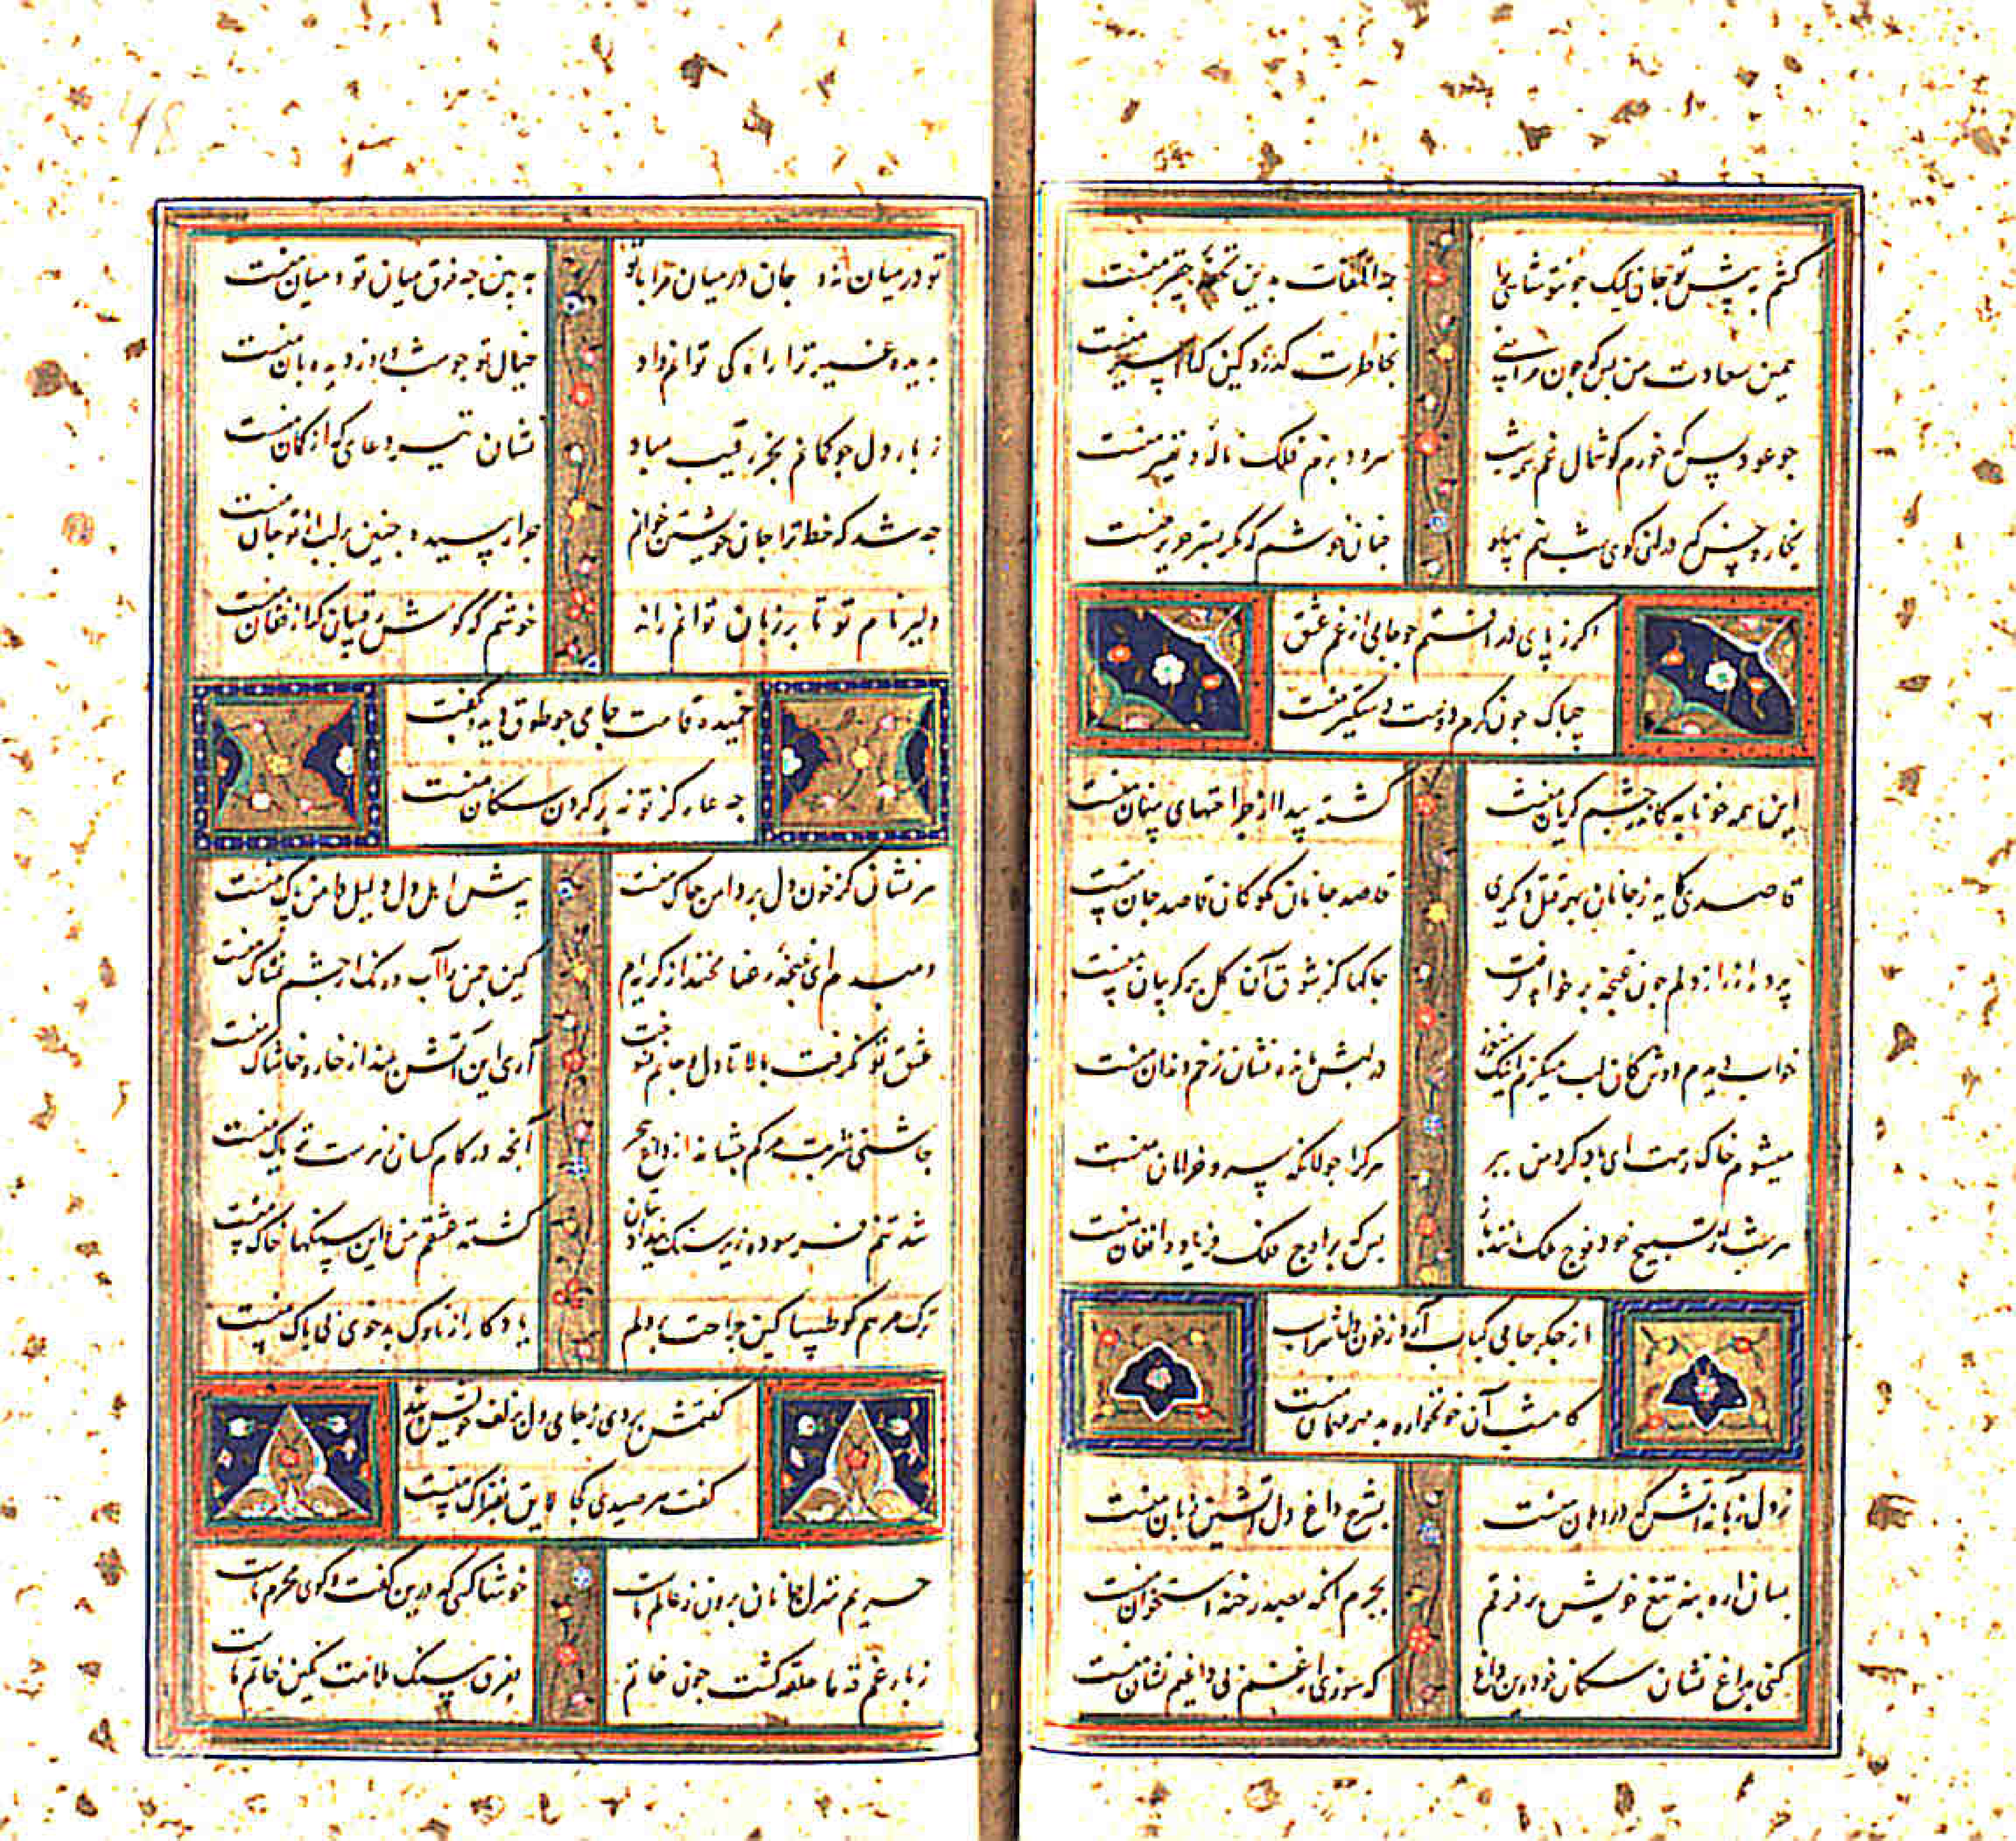 کشم به پیش تو جان لیک جون تو شاهی را
جه التفات بدین تحفهٔ حقیر منست
همین سعادت من بس که جون مرا بینی
بخاطرت گذرد کین کدا اسیر منست
جو عود بس که خورم گوشمال غم هر شب
سرود بزم فلک ناله و نفیر منست
بخار و خس که در آن کوی شب نهم پهلو
جنان خوشم که مگر بستر حریر منست
اکر ز پای در افتم جو جامی از غم عشق
جه باک جون کرم دوست دستگیر منست
این همه خونابه کز چشم گریان منست
گشته پیدا از جراحتهای پنهان منست
قاصدی کاید ز جانان بهر قتل دیگری
قاصد جانان مگو کان قاصد جان منست
پرده از راز دلم جون غنجه بر خواهد گرفت
جاکها کز شوق آن گل در گریبان منست
خواب دیدم دوش کان لب میگزم اینک هنوز
در لبش مانده نشان زخم دندان منست
میشوم خاک رهت ای باد گرد من ببر
هر کجا جولانگه سرو خرامان منست
هر شب از تسبیح خود فوج ملک مانند باز
بس که بر اوج فلک فریاد و افغان منست
از جکر جامی کباب آر و ز خون دل شراب
کامشب آن خونخواره بدمهر مهمان منست
ز دل زبانه آتش که در دهان منست
بشرح داغ دل آتشین زبان منست
بسان اره بنه تیغ خویش بر فرقم
بجرم آنکه بصد رخنه استخوان منست
کنی بداغ نشان سگان خود وین داغ
که سوزدم ز غم بی داغیم نشان منست
تو در میان نه و جان در میان مرا با تو
به بین جه فرق میان تو و میان منست
بدیده غیر ترا راه کی توانم داد
خیال تو جو شب و روز دیده بان منست
ز بار دل جو کمانم بجز رقیب مباد
نشان تیر دعای که از کمان منست
جه شد که خط ترا جان خویشتن خوانم
جرا رسیده جنین بر لب از تو جان منست
دلیر نام تو تا بر زبان توانم راند
خوشم که گوش رقیبان کر از فغان منست
خمیده قامت جامی جو طوق دید و بگفت
جه عار کز تو نه بر گردن سگان منست
هر نشان کز خون دل بر دامن جاک منست
پیش اهل دل دلیل دامن پاک منست
دمبدم ای غنجهٔ رعنا مخند از گریه‌ام
کین جمن را آب و رنگ از چشم نمناک منست
عشق تو نگرفت بالا تا دل و جانم نسوخت
آری این آتش بلند از خار و خاشاک منست
جاشنی شربت مرگم جشاند از داغ هجر
آنچه در کام کسان زهرست تریاک منست
شد تنم فرسوده زیر سنگ بیداد بتان
کشته عشقم من و این سنگها خاک منست
ترک مرهم گو طبیبا کین جراحت بر دلم
یادگار از ناوک بدخوی بی باک منست
گفتمش بردی ز جامی دل بزلف خویش بند
گفت هر صیدی کجا لایق بفتراک منست
حریم منزل جانان برون ز عالم ماست
خوشا کسی که درین گفت و گوی محرم ماست
ز بار غم قد ما حلقه گشت جون خاتم
بفرق سنگ ملامت نگین خاتم ماست